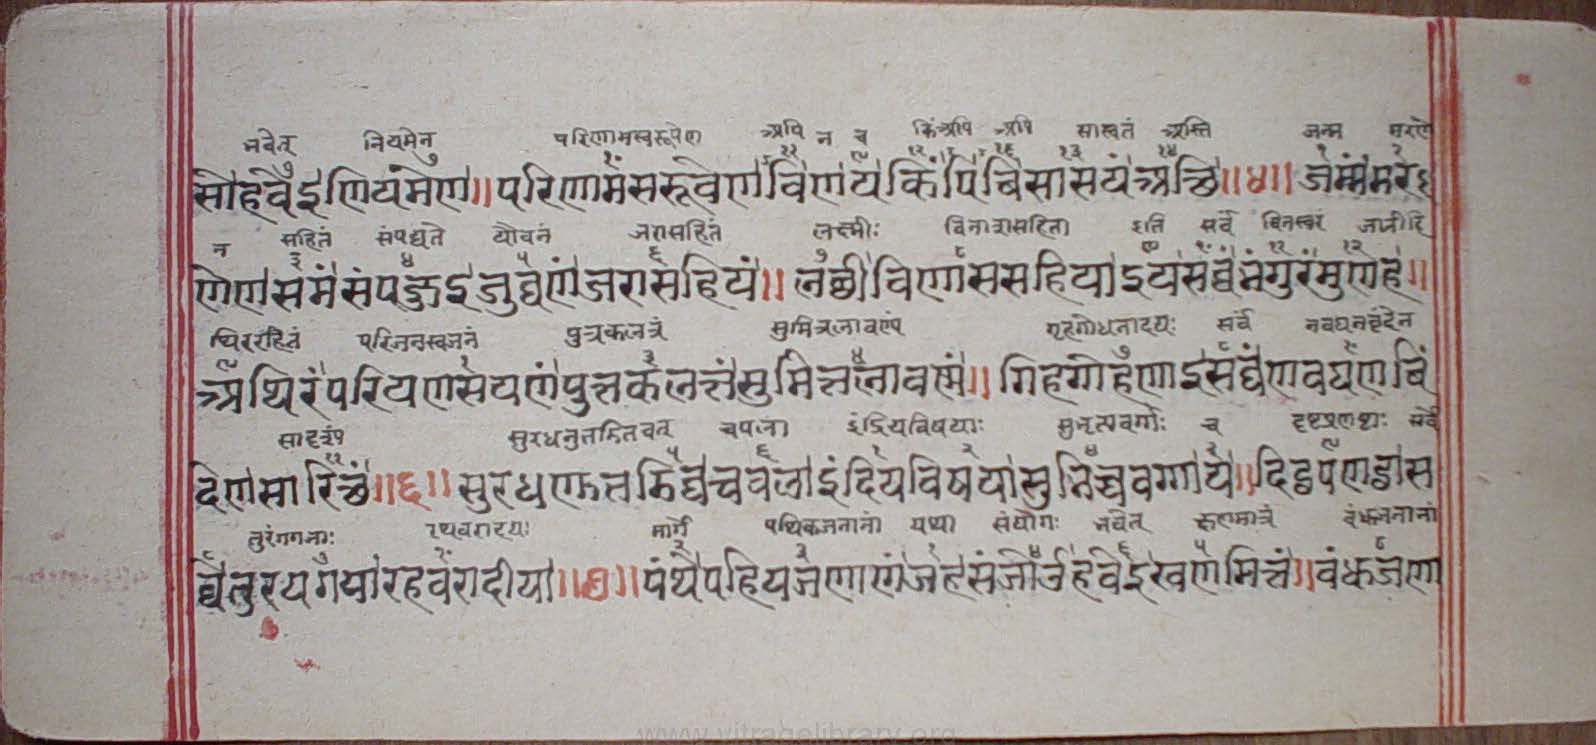 भवेत् नियमेन परिणामस्वरूपेण अपि न च किंअपि अपि सास्वतं अस्ति जन्म मरणे
सो हवेइ णियमेण ॥ परिणामसरूवेण वि ण य किं पि वि सासयं अत्थि ॥४॥ जम्मं मरणे
न सहितं संपद्यते यौवनं जरासहितं लक्ष्मीः विनाशसहिता इति सर्वं विनस्वरं जानीहि
णेण समं संपज्जइ जुव्वणं जरासहियं ॥ लच्छी विणाससहिया इय सव्वं भंगुरं मुणह ॥
थिररहितं परिजनस्वजनं पुत्रकलत्रं सुमित्रलावण्यं गृहगोधनादयः सर्वं नवघनवृंदेन
अथिरं परियणसयणं पुत्तकलत्तं सुमित्तलावण्णं ॥ गिहगोहणाइ सव्वं णवघणविं
सादृश्यं सुरधनुतडितवत् चपला इंद्रियविषयाः सुभृत्यवर्गाः च दृष्टप्रणष्टाः सर्वे
देण सारिच्छं ॥६॥ सुरधणुतडिव्व चवला इंदियविषया सुभिच्चवग्गा य ॥ दिट्ठपणट्ठा स
तुरंगगजाः रथवरादयः मार्गे पथिकजनानां यथा संयोगः भवेत् क्षणमात्रं बंधुजनानां
व्वे तुरयगया रहवरादीया ॥७॥ पंथे पहियजणाणं जह संजोउ हवेइ खणमित्तं ॥ बंधुजणा
www.vitragelibrary.org